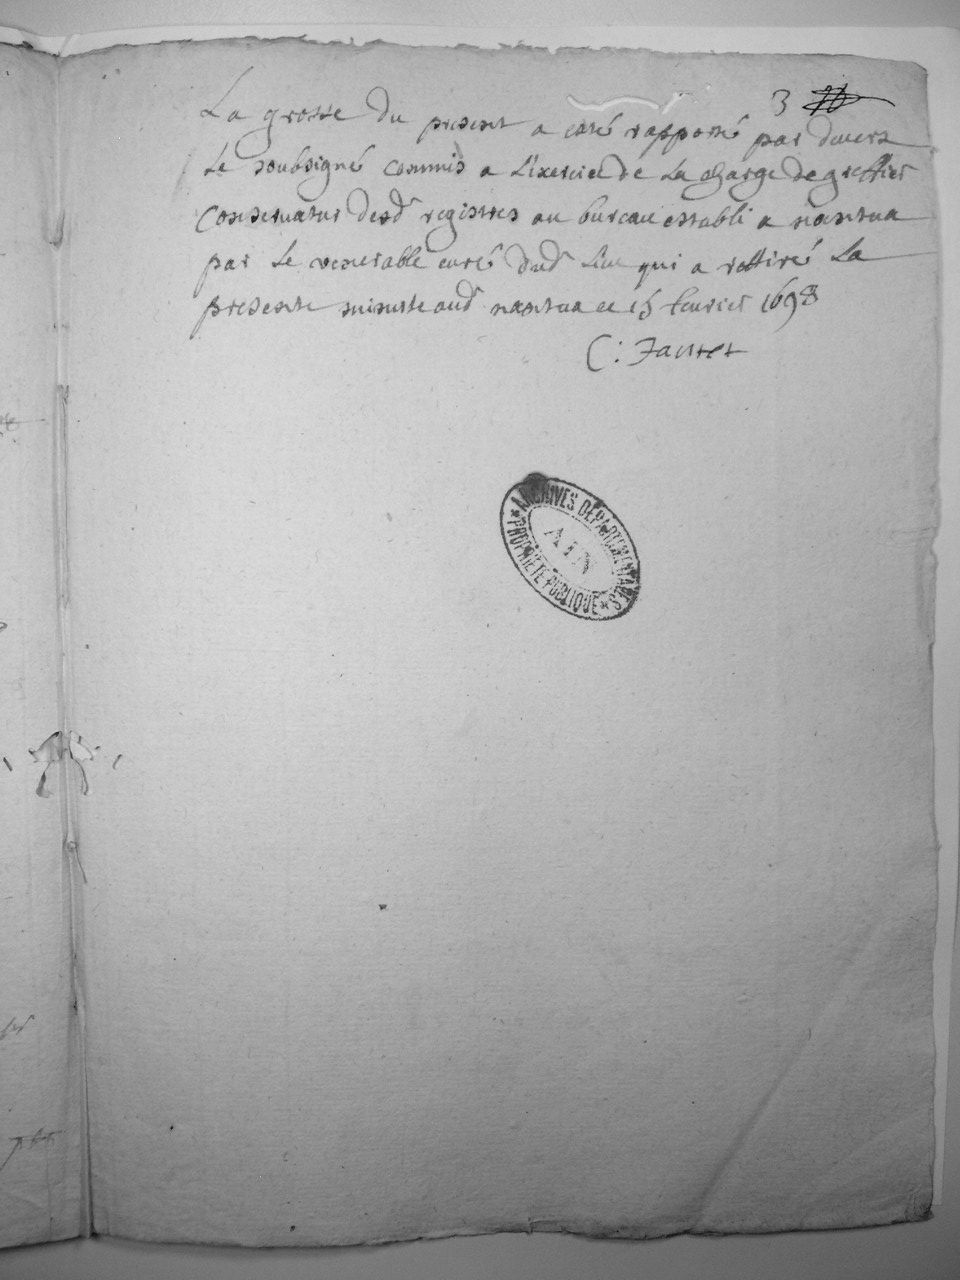 3
La grosse du present a esté rapporté par devers
Le soubsigné commis a L'exercice de La charge de greffier
Conservateur desd registres au bureau estably a nantua
par Le venerable curé dud Lieu qui a rettiré La
presente minutte aud nantua ce 15 fevrier 1698
ARCHIVES DEPARTEMENTALES
AIN
PROPRIETE PUBLIQUE